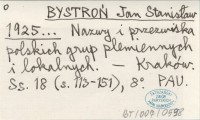 BYSTROŃ Jan Stanisław
1925... Nazwy i przezwiska
polskich grup plemiennych
i lokalnych. — Kraków.
Ss. 18 (s. 113-151), 8° PAU.
BT/009/0598